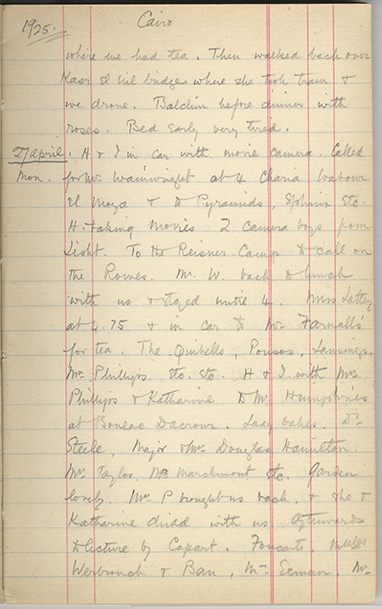 1925. Cairo
where we had tea. Then walked back over
Kasr el Nil bridge where she took train &
we drove. Balchin before dinner with
roses. Bed early very tired.
27 April. H & I in car with movie camera. Called
Mon. for Mr. Wainwright at 4 Charia Wabour
El Moya & to Pyramids, Sphinx etc.
H. taking movies. 2 camera boys from
Light. To the Reisner Camp to call on
the Rowes. Mr. W. back to lunch
with us & stayed until 4. Miss Lattey
at 4.45 & in car to Mr. Farnall's
for tea. The Quibells, Lansings.
Mrs. Phillips etc. etc. H & I with Mrs.
Phillips & Katharine to Mrs. Humphries
at Boulac Dacrour. Lady Oakes, Dr.
Steele, Major & Mrs. Douglas Hamilton.
Mrs. Taylor, Marchmont etc. Garden
lovely. Mrs. P brought us back, & she &
Katharine dined with us. Afterwards
to lecture by Capart. Foucarts, Mlles
Werbrouck & Mr.